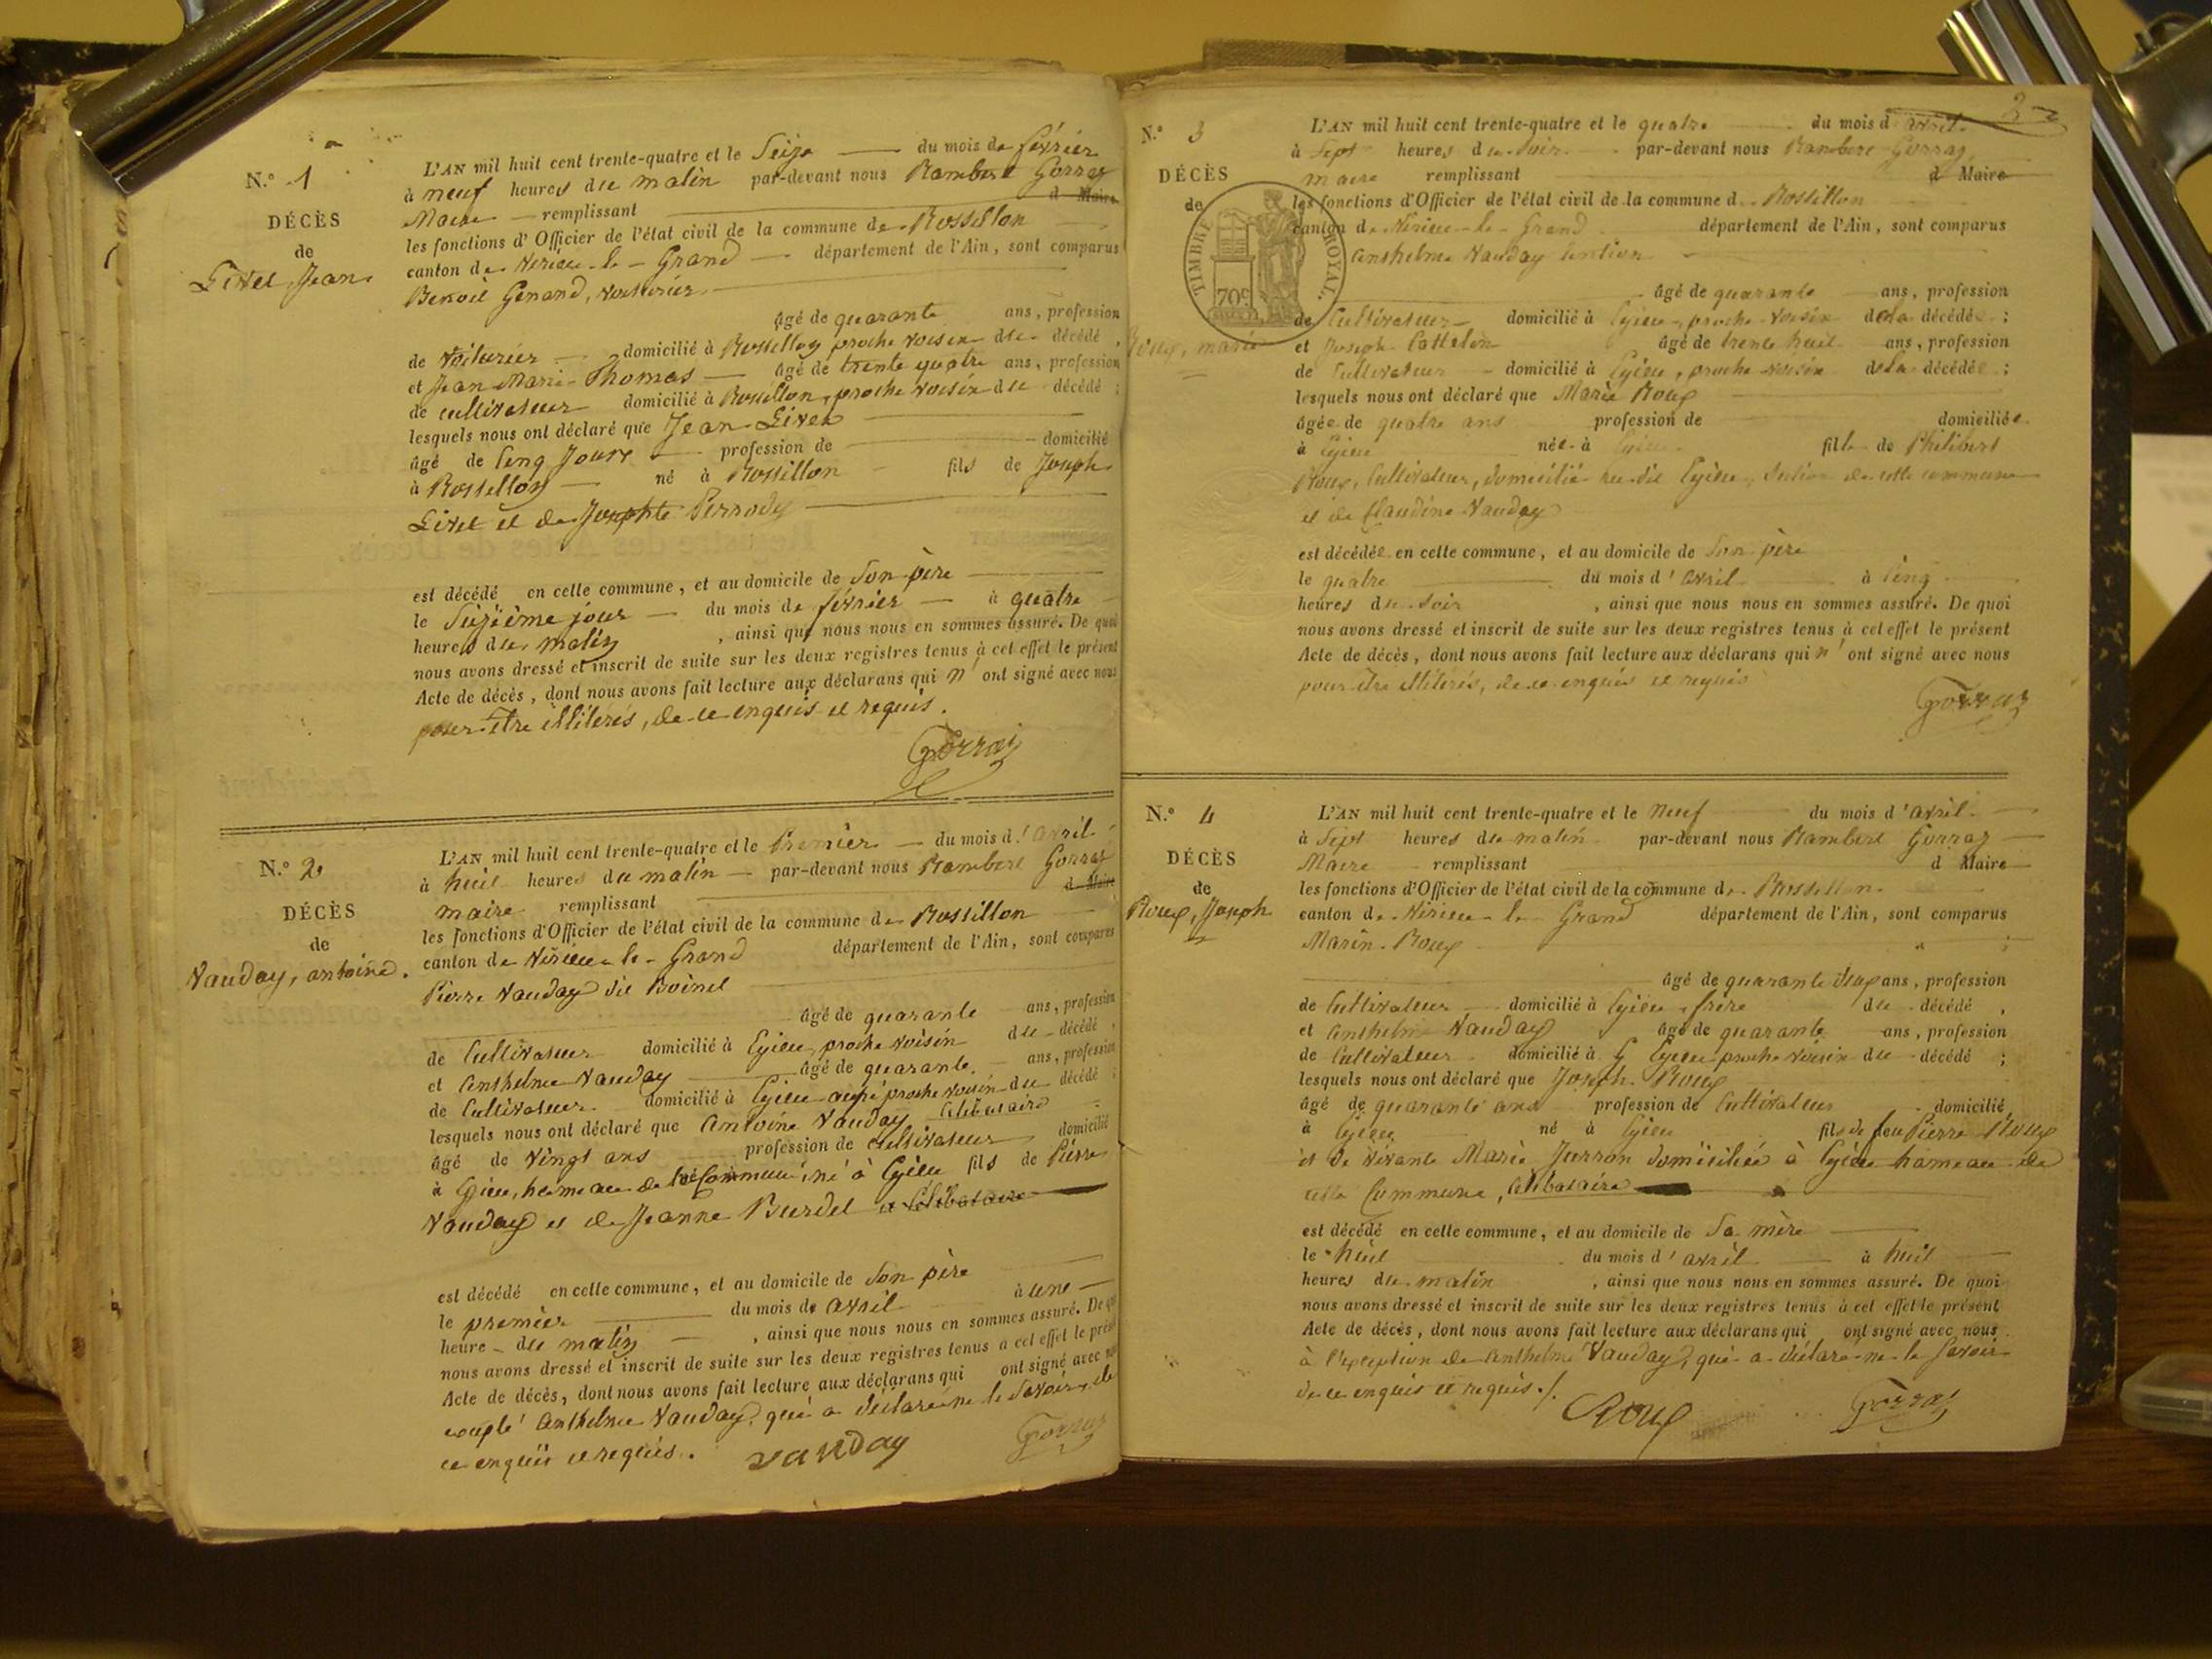 N.° 1
DÉCÈS
de
Livet, Jean
L'AN mil huit cent trente-quatre et le Seize du mois de février
à neuf heures du matin par-devant nous Rambert Gorraz
Maire remplissant d Maire
les fonctions d'Officier de l'état civil de la commune de Rossillon
canton de Virieu-le-Grand département de l'Ain, sont comparus
Benoit Genand, voiturier
âgé de quarante ans, profession
de Voiturier domicilié à Rossillon proche voisin du décédé,
et Jean Marie Thomas âgé de trente quatre ans, profession
de cultivateur domicilié à Rossillon, proche voisin du décédé ;
lesquels nous ont déclaré que Jean Livet
âgé de Cinq Jours profession de domicilié
à Rossillon né à Rossillon fils de Joseph
Livet et de Josephte Perrody
est décédé en cette commune, et au domicile de Son père
le Seizième jour du mois de février à quatre
heures du matin, ainsi que nous nous en sommes assuré. De quoi
nous avons dressé et inscrit de suite sur les deux registres tenus à cet effet le présent
Acte de décès, dont nous avons fait lecture aux déclarans qui n' ont signé avec nous
pour être illitérés, de ce enquis et requis.
Gorraz
N.° 2
DÉCÈS
de
Vauday, antoine.
L'AN mil huit cent trente-quatre et le Premier du mois d'avril
à huit heures du matin par-devant nous Rambert Gorraz
maire remplissant d Maire
les fonctions d'Officier de l'état civil de la commune de Rossillon
canton de Virieu-le-Grand département de l'Ain, sont comparus
Pierre Vauday dit Boinel
âgé de quarante ans, profession
de Cultivateur domicilié à Egieu, proche voisin du décédé,
et Anthelme Vauday âgé de quarante ans, profession
de Cultivateur domicilié à Egieu aussi proche voisin du décédé ;
lesquels nous ont déclaré que Antoine Vauday Célibataire
âgé de Vingt ans profession de cultivateur domicilié
à Egieu, hameau de la Commune, né à Egieu fils de Pierre
Vauday et de Jeanne Burdel et Célibataire
est décédé en cette commune, et au domicile de Son père
le premier du mois de avril à une
heure du matin, ainsi que nous nous en sommes assuré. De quoi
nous avons dressé et inscrit de suite sur les deux registres tenus à cet effet le présent
Acte de décès, dont nous avons fait lecture aux déclarans qui ont signé avec nous
excepté Anthelme Vauday, qui a déclaré ne le Savoir, de
ce enquis et requis.
vauday
Gorraz
2
N.° 3
DÉCÈS
de
Roux, marie
TIMBRE ROYAL.
70c
L'AN mil huit cent trente-quatre et le quatre du mois d avril
à Sept heures du Soir par-devant nous Rambert Gorraz
maire remplissant d Maire
les fonctions d'Officier de l'état civil de la commune de Rossillon
canton de Virieu-le-Grand département de l'Ain, sont comparus
Anthelme Vauday
âgé de quarante ans, profession
de Cultivateur domicilié à Egieu, proche voisin de la décédée ;
et Joseph Cattelin âgé de trente huit ans, profession
de Cultivateur domicilié à Egieu, proche voisin de la décédée ;
lesquels nous ont déclaré que Marie Roux
âgée de quatre ans profession de domiciliée
à Egieu née à Egieu fille de Philibert
Roux, Cultivateur, domicilié au dit Egieu, Section de cette commune
et de Claudine Vauday
est décédée en cette commune, et au domicile de Son père
le quatre du mois d'avril à cinq
heures du soir, ainsi que nous nous en sommes assuré. De quoi
nous avons dressé et inscrit de suite sur les deux registres tenus à cet effet le présent
Acte de décès, dont nous avons fait lecture aux déclarans qui n' ont signé avec nous
pour être illitérés, de ce enquis et requis
Gorraz
N.° 4
DÉCÈS
de
Roux, Joseph
L'AN mil huit cent trente-quatre et le Neuf du mois d'avril
à Sept heures du matin par-devant nous Rambert Gorraz
Maire remplissant d Maire
les fonctions d'Officier de l'état civil de la commune de Rossillon
canton de Virieu-le-Grand département de l'Ain, sont comparus
Marin Roux
âgé de quarante deux ans, profession
de Cultivateur domicilié à Egieu, frère du décédé,
et Anthelme Vauday âgé de quarante ans, profession
de Cultivateur domicilié à Egieu proche voisin du décédé ;
lesquels nous ont déclaré que Joseph Roux
âgé de quarante ans profession de Cultivateur domicilié
à Egieu né à Egieu fils de feu Pierre Roux
et de vivante Marie Jurron domiciliée à Egieu hameau de
cette Commune, Célibataire
est décédé en cette commune, et au domicile de Sa mère
le huit du mois d'avril à huit
heures du matin, ainsi que nous nous en sommes assuré. De quoi
nous avons dressé et inscrit de suite sur les deux registres tenus à cet effet le présent
Acte de décès, dont nous avons fait lecture aux déclarans qui ont signé avec nous
à l'exception de Anthelme Vauday, qui a déclaré ne le Savoir
de ce enquis et requis ./.
Roux
Gorraz